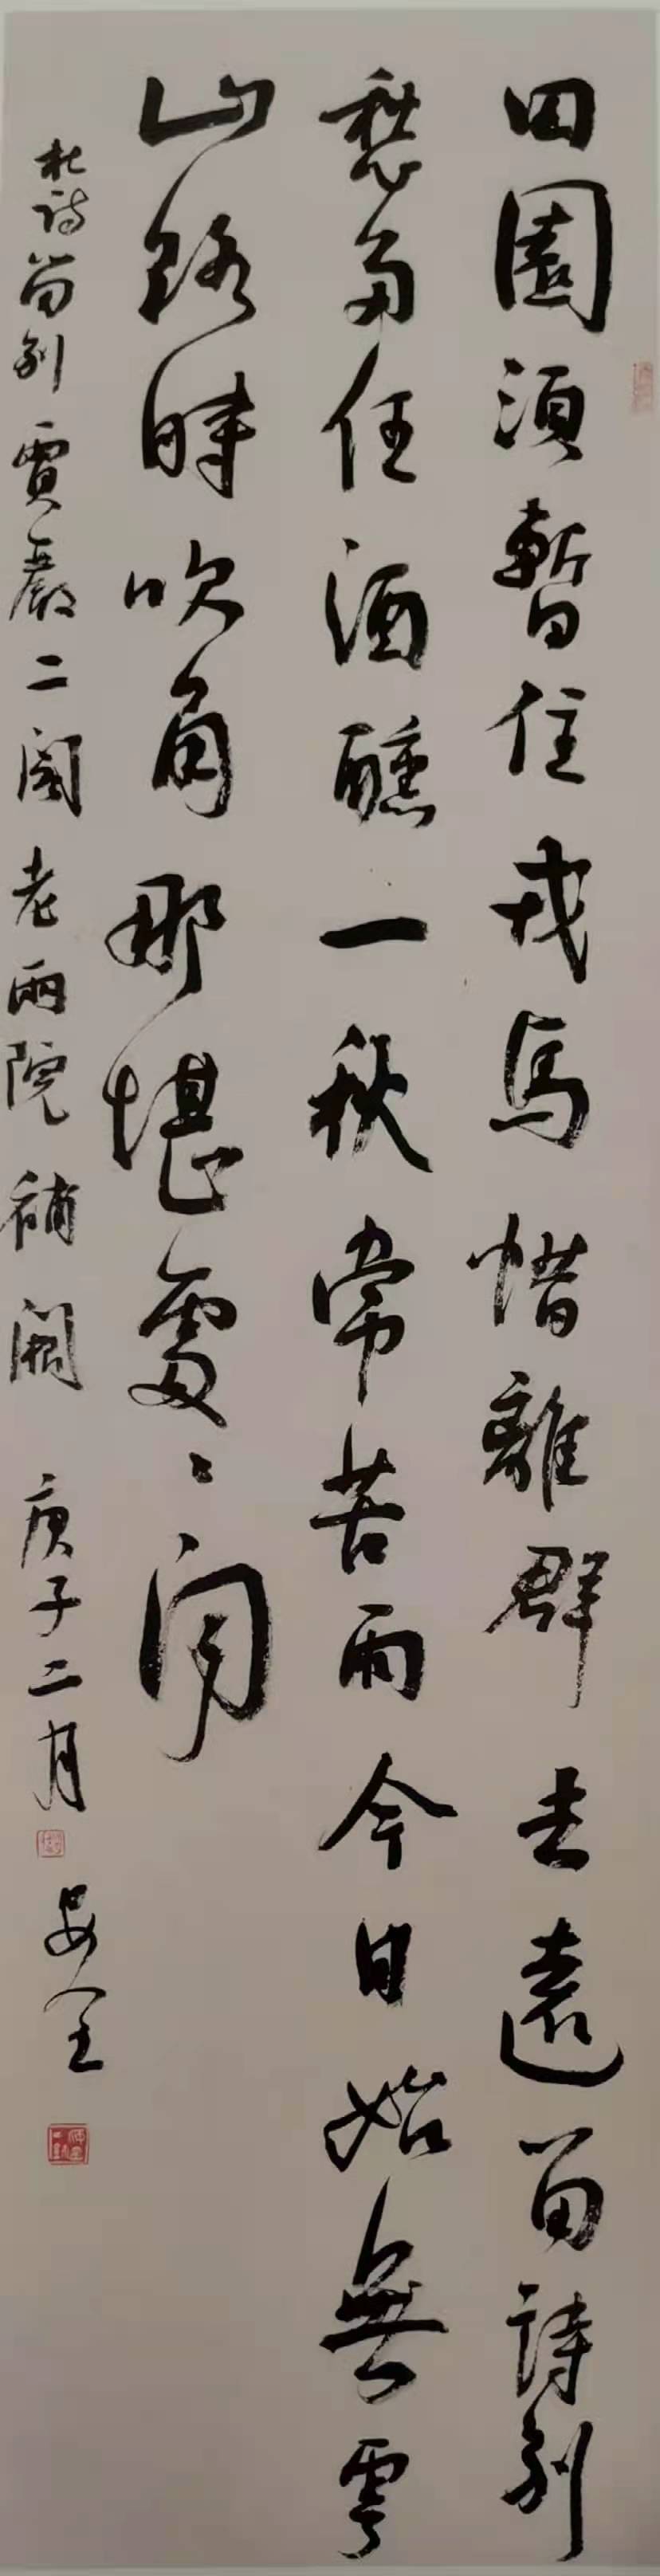 田園須暫住戎馬惜離群去遠留詩別
愁多任酒醺一秋常苦雨今日始無雲
山路時吹角那堪處〻聞
杜詩留別賈嚴二閣老兩院補闕 庚子二月